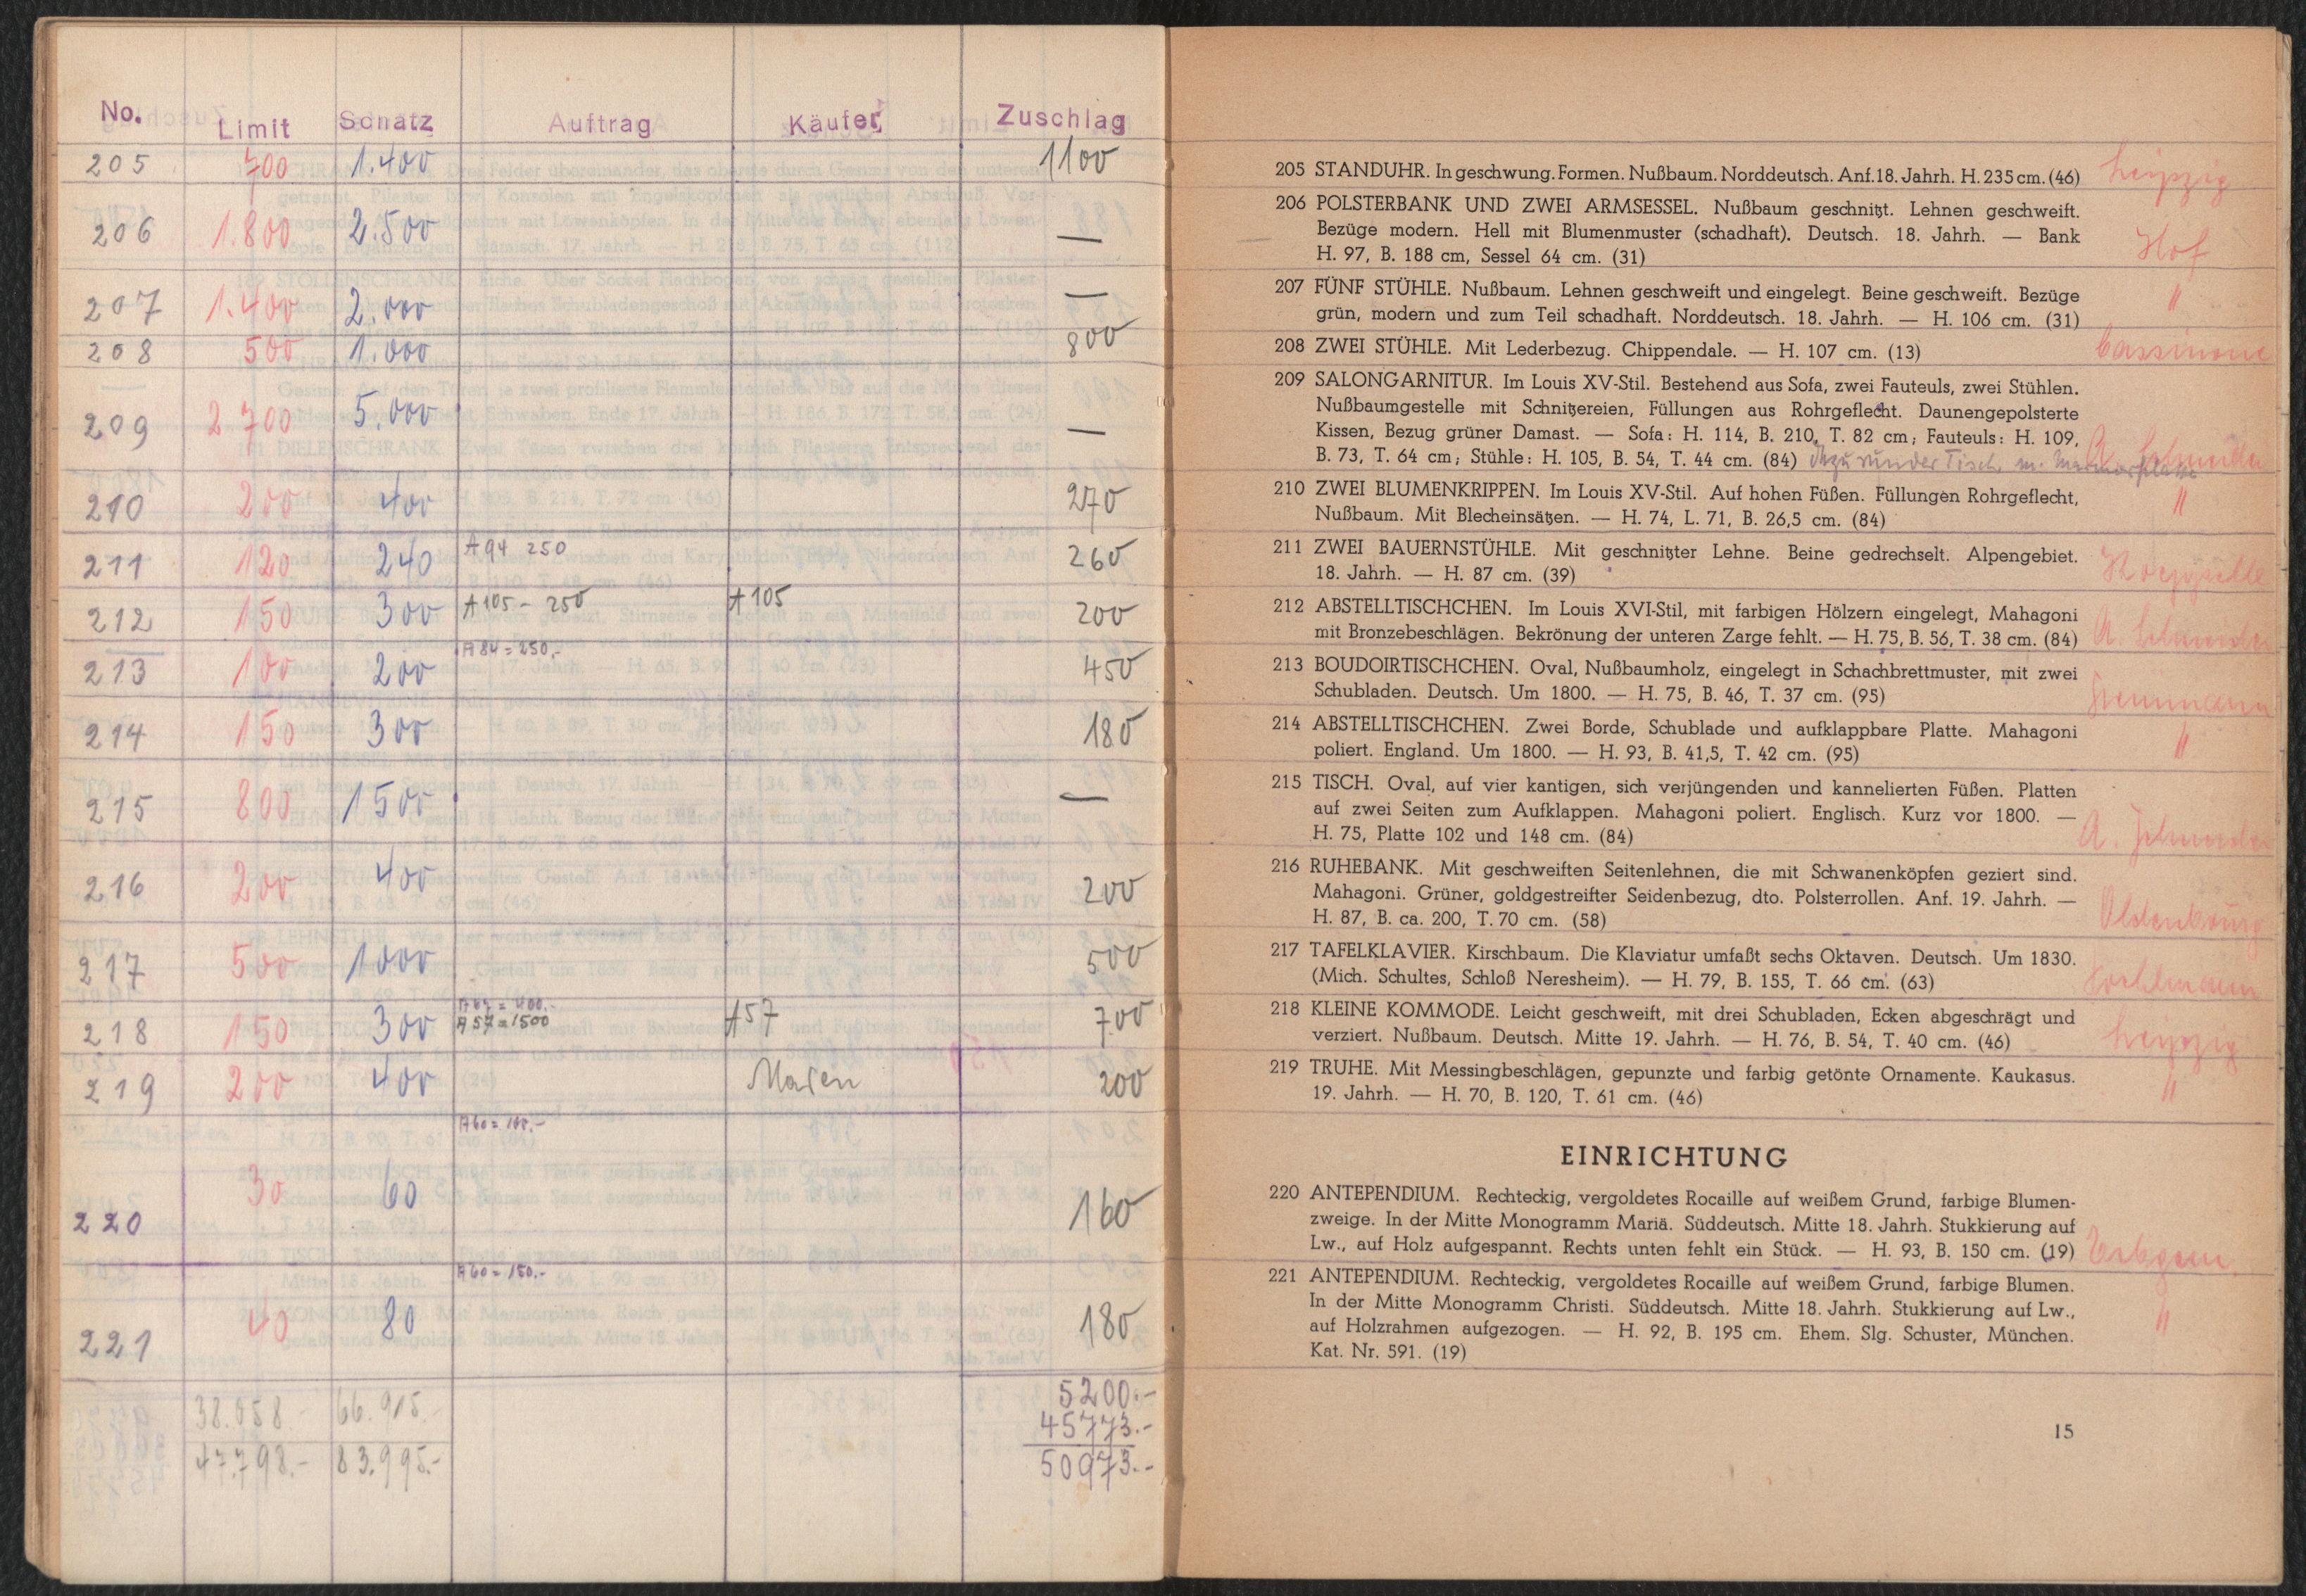 No. Limit Schatz Auftrag Käufer Zuschlag
205 700 1.400 1100
206 1.800 2.500 —
207 1.400 2.000 —
208 500 1.000 800
209 2700 5.000 —
210 200 400 270
211 120 240 A94 250 260
212 150 300 A105 - 250 A105 200
213 100 200 A84 = 250.- 450
214 150 300 180
215 800 1500 —
216 200 400 200
217 500 1000 500
A67 = 400.-
218 150 300 A57 = 1500 A57 700
219 200 400 200
A60 = 100.-
220 30 60 160
A60 = 150.-
221 40 80 180
5200.-
38.058.- 66.915.- 45773.-
47.798.- 83.995.- 50973.-
205 STANDUHR. In geschwung. Formen. Nußbaum. Norddeutsch. Anf. 18. Jahrh. H. 235 cm. (46) Leipzig
206 POLSTERBANK UND ZWEI ARMSESSEL. Nußbaum geschnitzt. Lehnen geschweift.
Bezüge modern. Hell mit Blumenmuster (schadhaft). Deutsch. 18. Jahrh. — Bank
H. 97, B. 188 cm, Sessel 64 cm. (31) Hof
207 FÜNF STÜHLE. Nußbaum. Lehnen geschweift und eingelegt. Beine geschweift. Bezüge "
grün, modern und zum Teil schadhaft. Norddeutsch. 18. Jahrh. — H. 106 cm. (31)
208 ZWEI STÜHLE. Mit Lederbezug. Chippendale. — H. 107 cm. (13) Cassinone
209 SALONGARNITUR. Im Louis XV-Stil. Bestehend aus Sofa, zwei Fauteuls, zwei Stühlen.
Nußbaumgestelle mit Schnitzereien, Füllungen aus Rohrgeflecht. Daunengepolsterte
Kissen, Bezug grüner Damast. — Sofa: H. 114, B. 210, T. 82 cm; Fauteuls: H. 109,
B. 73, T. 64 cm; Stühle: H. 105, B. 54, T. 44 cm. (84) dazu runder Tisch m. Marmorplatte A. Schneider
210 ZWEI BLUMENKRIPPEN. Im Louis XV-Stil. Auf hohen Füßen. Füllungen Rohrgeflecht, "
Nußbaum. Mit Blecheinsätzen. — H. 74, L. 71, B. 26,5 cm. (84)
211 ZWEI BAUERNSTÜHLE. Mit geschnitzter Lehne. Beine gedrechselt. Alpengebiet.
18. Jahrh. — H. 87 cm. (39)
212 ABSTELLTISCHCHEN. Im Louis XVI-Stil, mit farbigen Hölzern eingelegt, Mahagoni
mit Bronzebeschlägen. Bekrönung der unteren Zarge fehlt. — H. 75, B. 56, T. 38 cm. (84) A. Schneider
213 BOUDOIRTISCHCHEN. Oval, Nußbaumholz, eingelegt in Schachbrettmuster, mit zwei
Schubladen. Deutsch. Um 1800. — H. 75, B. 46, T. 37 cm. (95)
214 ABSTELLTISCHCHEN. Zwei Borde, Schublade und aufklappbare Platte. Mahagoni "
poliert. England. Um 1800. — H. 93, B. 41,5, T. 42 cm. (95)
215 TISCH. Oval, auf vier kantigen, sich verjüngenden und kannelierten Füßen. Platten
auf zwei Seiten zum Aufklappen. Mahagoni poliert. Englisch. Kurz vor 1800. —
H. 75, Platte 102 und 148 cm. (84) A. Schneider
216 RUHEBANK. Mit geschweiften Seitenlehnen, die mit Schwanenköpfen geziert sind.
Mahagoni. Grüner, goldgestreifter Seidenbezug, dto. Polsterrollen. Anf. 19. Jahrh. —
H. 87, B. ca. 200, T. 70 cm. (58) Oldenbourg
217 TAFELKLAVIER. Kirschbaum. Die Klaviatur umfaßt sechs Oktaven. Deutsch. Um 1830.
(Mich. Schultes, Schloß Neresheim). — H. 79, B. 155, T. 66 cm. (63)
218 KLEINE KOMMODE. Leicht geschweift, mit drei Schubladen, Ecken abgeschrägt und
verziert. Nußbaum. Deutsch. Mitte 19. Jahrh. — H. 76, B. 54, T. 40 cm. (46) Leipzig
219 TRUHE. Mit Messingbeschlägen, gepunzte und farbig getönte Ornamente. Kaukasus.
19. Jahrh. — H. 70, B. 120, T. 61 cm. (46) "
EINRICHTUNG
220 ANTEPENDIUM. Rechteckig, vergoldetes Rocaille auf weißem Grund, farbige Blumen-
zweige. In der Mitte Monogramm Mariä. Süddeutsch. Mitte 18. Jahrh. Stukkierung auf
Lw., auf Holz aufgespannt. Rechts unten fehlt ein Stück. — H. 93, B. 150 cm. (19)
221 ANTEPENDIUM. Rechteckig, vergoldetes Rocaille auf weißem Grund, farbige Blumen.
In der Mitte Monogramm Christi. Süddeutsch. Mitte 18. Jahrh. Stukkierung auf Lw.,
auf Holzrahmen aufgezogen. — H. 92, B. 195 cm. Ehem. Slg. Schuster, München. "
Kat. Nr. 591. (19)
15